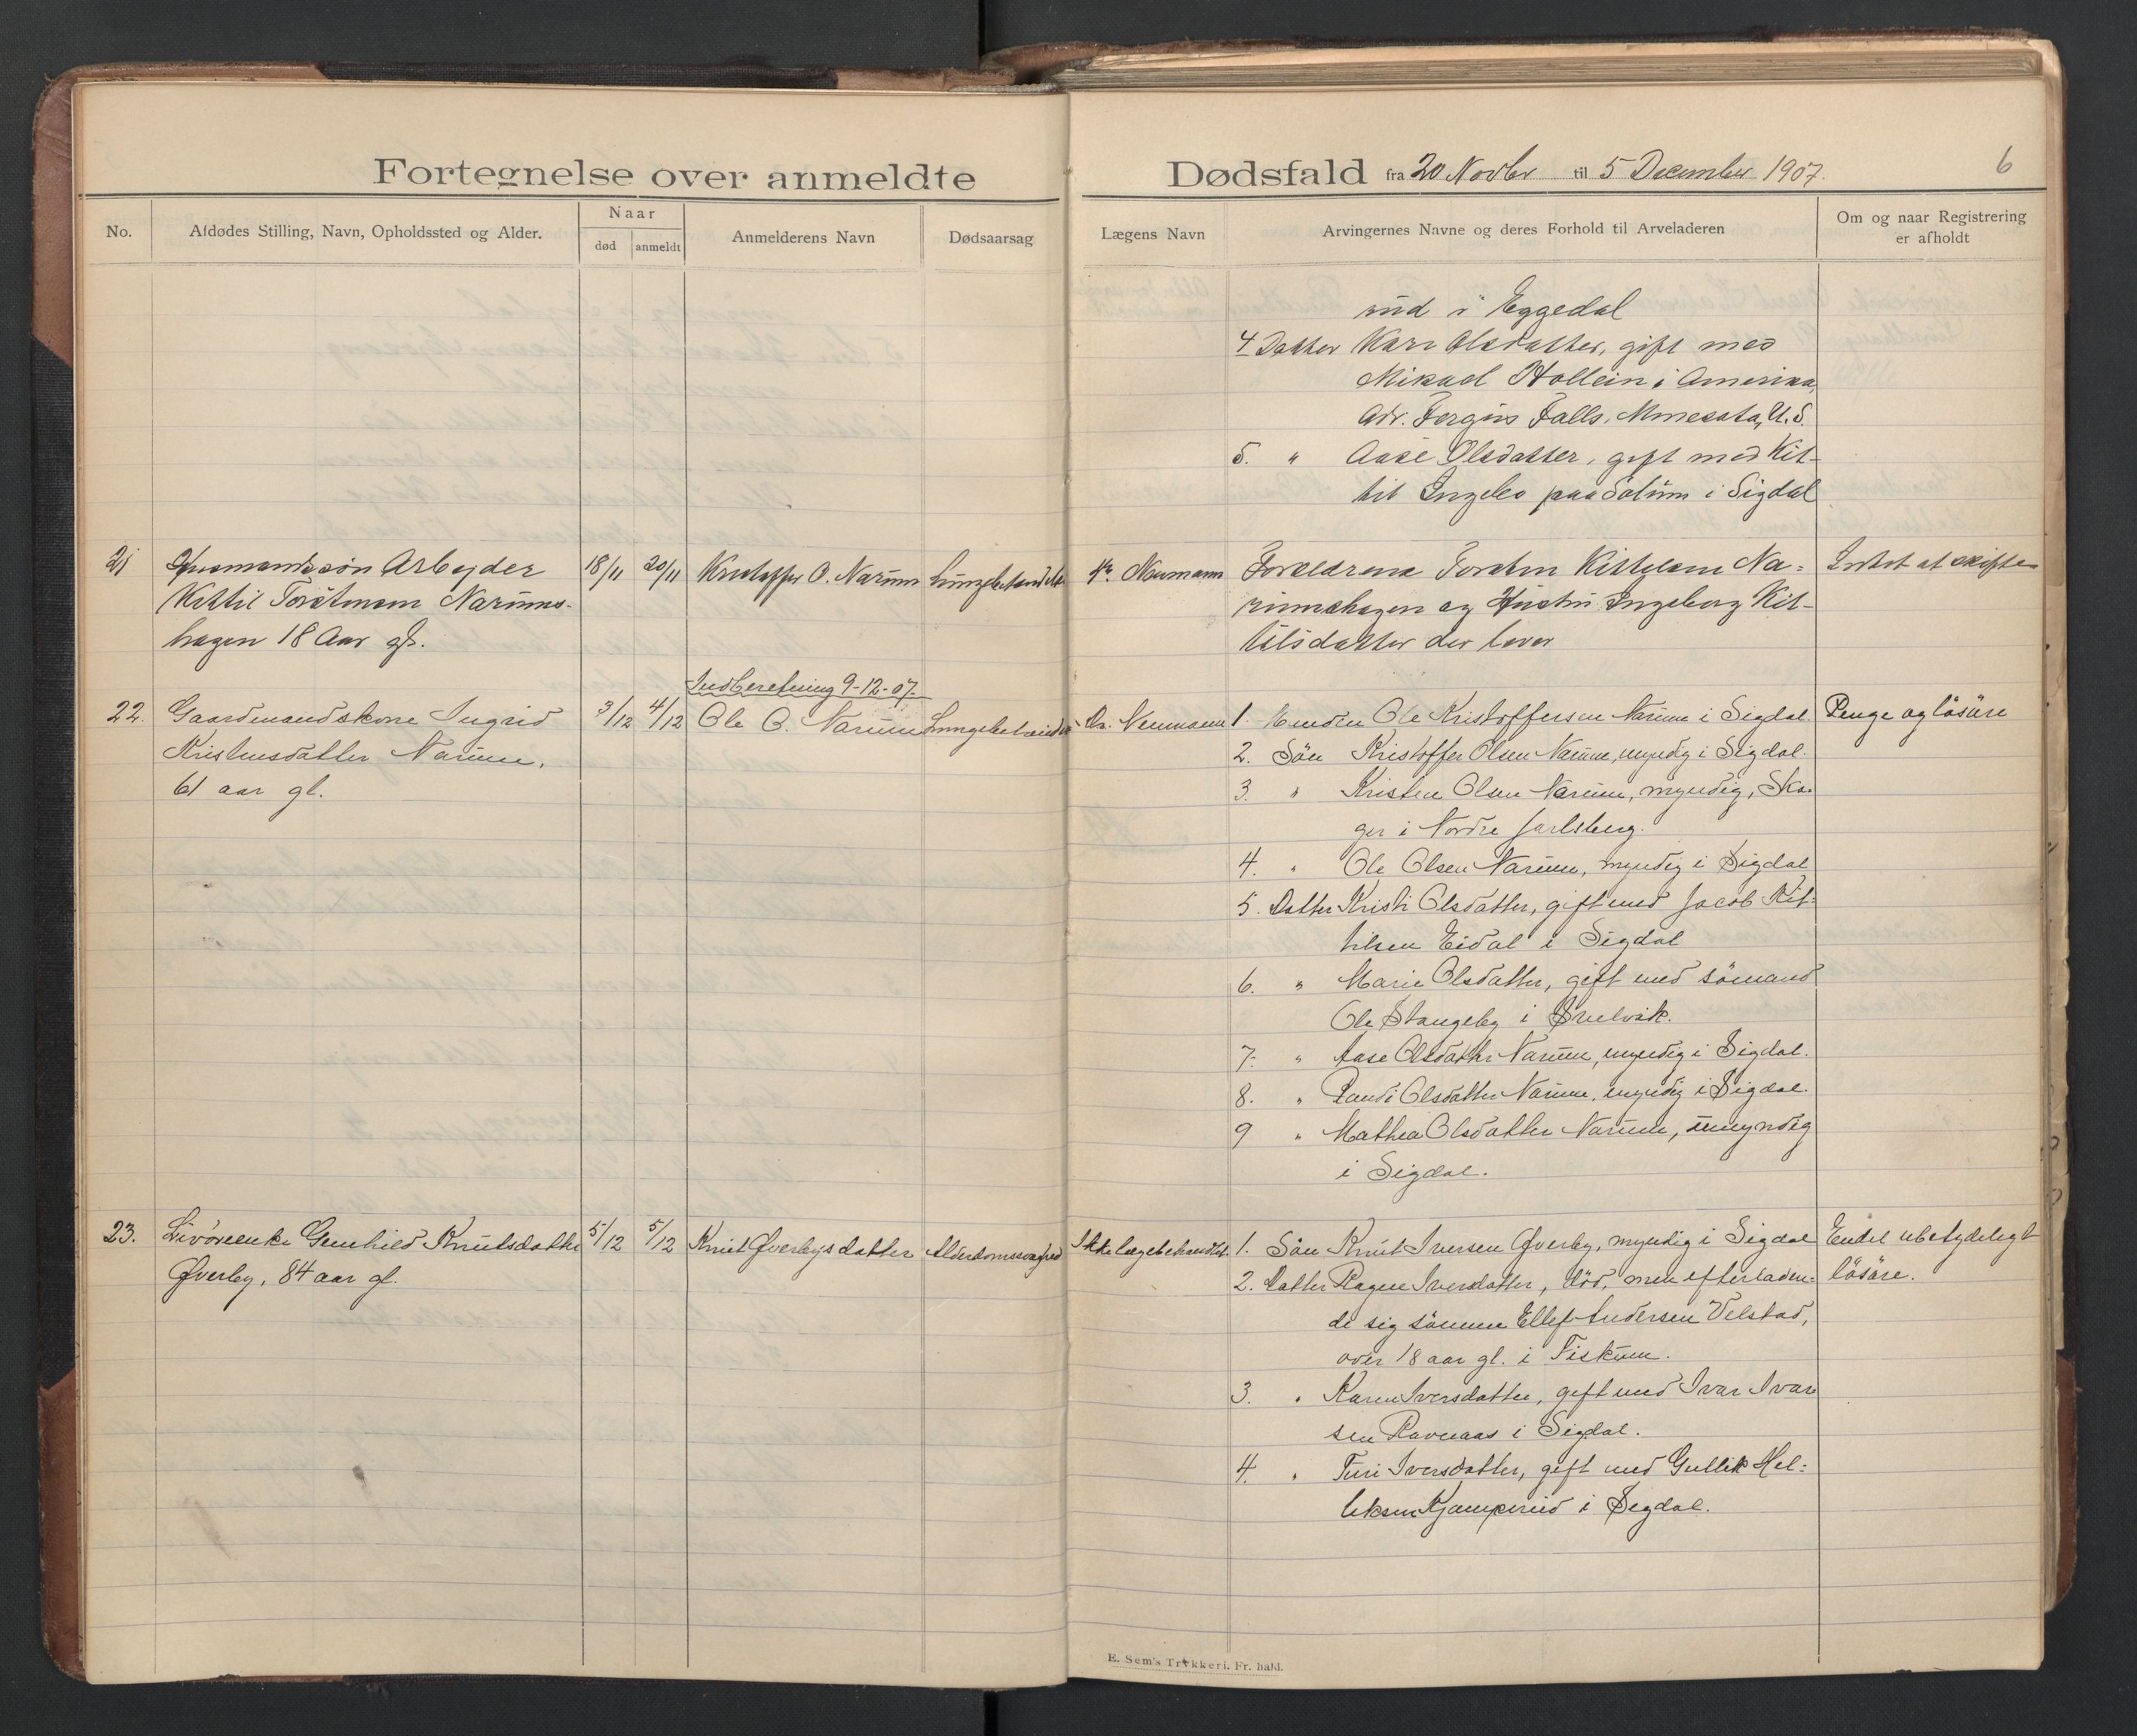 Fortegnelse over anmeldte
Dødsfald fra 20 Novbr til 5 December 1907.
6
No.
Afdødes Stilling, Navn, Opholdssted og Alder.
Naar
død
anmeldt
Anmelderens Navn
Dødsaarsag
Lægens Navn
Arvingernes Navne og deres Forhold til Arveladeren
Om og naar Registrering
er afholdt
rud i Eggedal
4 Datter Kari Olsdatter, gift med
Mikael Hollein i Amerika,
Adr. Fergus Falls, Minesota, U.S.
5. " Aase Olsdatter, gift med Kit-
til Ingebo paa Solum i Sigdal
21 Husmandssøn Arbejder 18/11 20/11 Kristoffer O. Narum Lungebetændelse Dr. Neumann Forældrene Torsten Kittelsen Na= Intet at skifte
Kittil Torstensen Narums-
rumshagen og Hustru Ingeborg Kit-
hagen 18 Aar gl.
tilsdatter der lever
Indberetning 9-12-07.
22. Gaardmandskone Ingrid 3/12 4/12 Ole O. Narum Lungebetændelse Dr. Neumann 1. Manden Ole Kristoffersen Narum i Sigdal Penge og løsøre
Kristensdatter Narum,
2. Søn Kristoffer Olsen Narum, myndig i Sigdal.
61 aar gl.
3. " Kristen Olsen Narum, myndig, Sko-
ger i Nordre Jarlsberg.
4. " Ole Olsen Narum, myndig i Sigdal
5. Datter Kristi Olsdatter, gift med Jacob Kit=
tilsen Eidal i Sigdal
6. " Marie Olsdatter, gift med sömand
Ole Stangeby i Svelvik.
7. " Aase Olsdatter Narum, myndig i Sigdal.
8. " Randi Olsdatter Narum, myndig i Sigdal.
9 " Mathea Olsdatter Narum, umyndig
i Sigdal.
23. Livøreenke Gunhild Knutsdatter 5/12 5/12 Knut Øverbys datter Alderdomssvaghed Ikke lægebehandlet. 1. Søn Knut Iversen Øverby, myndig i Sigdal Endel ubetydeligt
Øverby, 84 aar gl.
2. Datter Ragne Iversdatter, död, men efterladen= løsøre.
de sig sönnen Ellef Andersen Velstad,
over 18 aar gl. i Fiskum.
3. " Karen Iversdatter, gift med Ivar Ivar
sen Ravnaas i Sigdal.
4. " Turi Iversdatter, gift med Gullik Hel=
liksen Kjamperud i Sigdal.
E. Sem's Trykkeri. Fr. hald.